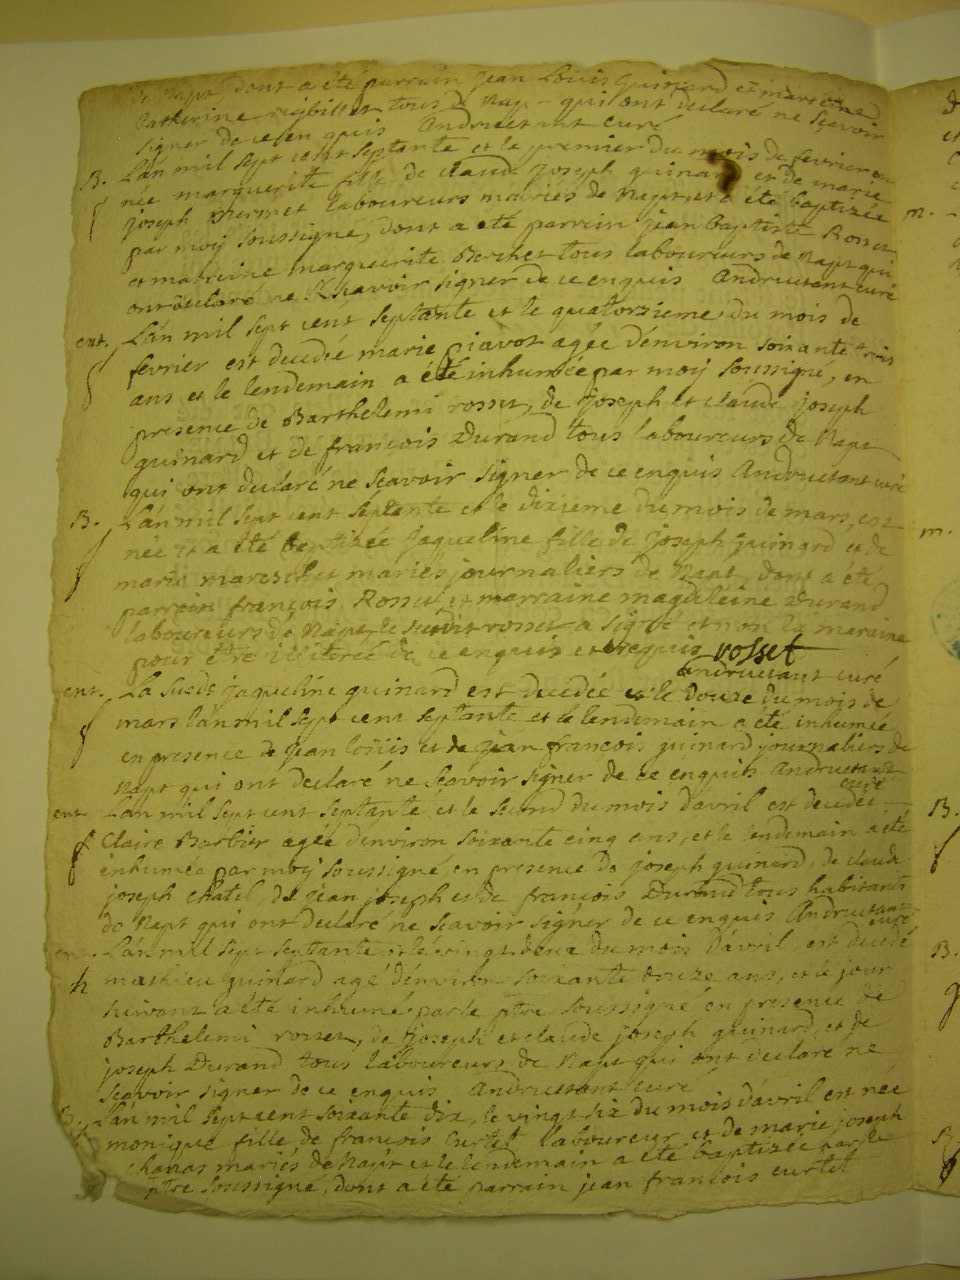 de Napt dont a été parrain jean Louis guinard et marraine
Catherine tous de Napt qui ont declaré ne sçavoir
signer de ce enquis Andruetant curé
B. L'an mil sept cent septante et le premier du mois de fevrier est
née marguerite fille de claude joseph guinard et de marie
joseph mermet laboureurs mariés de Napt, et a été baptizée
par moy soussigné, dont a été parrein jean baptiste Rosset
et marreine marguerite Berchet tous laboureurs de Napt qui
ont declaré ne sçavoir signer de ce enquis Andruetant curé
ent. L'an mil sept cent septante et le quatorzieme du mois de
fevrier est decedée marie agée d'environ soixante trois
ans et le lendemain a été inhumée par moy soussigné, en
presence de Barthelemi rosset, de joseph et claude joseph
guinard et de françois Durand tous laboureurs de Napt
qui ont declaré ne sçavoir signer de ce enquis Andruetant curé
B. L'an mil sept cent septante et le dixieme du mois de mars, est
née et a été baptizée jaqueline fille de joseph guinard et de
marie mareschet mariés journaliers de Napt, dont a été
parrain françois Rosset et marraine magdeleine Durand
laboureurs de Napt, le susdit rosset a signé et non la maraine
pour être illiterée de ce enquise et requise rosset
Andruetant curé
ent. La susde jaqueline guinard est decedée le douze du mois de
mars l'an mil sept cent septante et le lendemain a été inhumée
en presence de jean loüis et de jean françois guinard journaliers de
Napt qui ont declaré ne sçavoir signer de ce enquis Andruetant
curé
ent. L'an mil sept cent septante et le second du mois d'avril est decedée
Claire Barbier agée d'environ soixante cinq ans, et le lendemain a été
inhumée par moy soussigné en presence de joseph guinard, de claude
joseph chatel, de jean joseph et de françois Durand tous habitants
de Napt qui ont declaré ne sçavoir signer de ce enquis Andruetant
curé
ent. L'an mil sept septante et le vingt deux du mois d'avril, est decedé
h mathieu guinard agé d'environ soixante douze ans, et le jour
suivant a été inhumé par le ptre soussigné en presence de
Barthelemi rosset, de joseph et claude joseph guinard, et de
joseph Durand tous laboureurs de Napt qui ont declaré ne
sçavoir signer de ce enquis Andruetant curé
B. L'an mil sept cent soixante dix, le vingt six du mois d'avril est née
monique fille de françois Curtet laboureur et de marie joseph
chanas mariés de Napt et le lendemain a été baptizée par le
ptre soussigné, dont a été parrain jean françois curtet
m.
m.
B.
B.